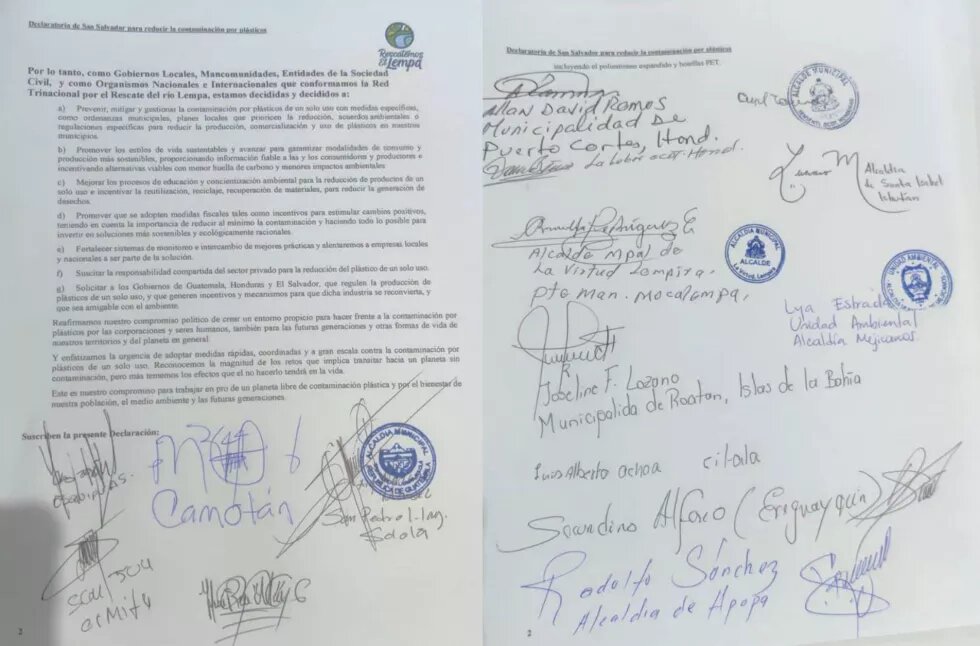 Declaratoria de San Salvador para reducir la contaminación por plásticos
Rescatemos
El Lempa
Por lo tanto, como Gobiernos Locales, Mancomunidades, Entidades de la Sociedad
Civil, y como Organismos Nacionales e Internacionales que conformamos la Red
Trinacional por el Rescate del río Lempa, estamos decididas y decididos a:
a) Prevenir, mitigar y gestionar la contaminación por plásticos de un solo uso con medidas específicas,
como ordenanzas municipales, planes locales que prioricen la reducción, acuerdos ambientales o
regulaciones específicas para reducir la producción, comercialización y uso de plásticos en nuestros
municipios.
b) Promover los estilos de vida sustentables y avanzar para garantizar modalidades de consumo y
producción más sostenibles, proporcionando información fiable a las y los consumidores y productores e
incentivando alternativas viables con menor huella de carbono y menores impactos ambientales.
c) Mejorar los procesos de educación y concientización ambiental para la reducción de productos de un
solo uso e incentivar la reutilización, reciclaje, recuperación de materiales, para reducir la generación de
desechos.
d) Promover que se adopten medidas fiscales tales como incentivos para estimular cambios positivos,
teniendo en cuenta la importancia de reducir al mínimo la contaminación y haciendo todo lo posible para
invertir en soluciones más sostenibles y ecológicamente racionales.
e) Fortalecer sistemas de monitoreo e intercambio de mejores prácticas y alentaremos a empresas locales
y nacionales a ser parte de la solución.
f) Suscitar la responsabilidad compartida del sector privado para la reducción del plástico de un solo uso.
g) Solicitar a los Gobiernos de Guatemala, Honduras y El Salvador, que regulen la producción de
plásticos de un solo uso, y que generen incentivos y mecanismos para que dicha industria se reconvierta, y
que sea amigable con el ambiente.
Reafirmamos nuestro compromiso político de crear un entorno propicio para hacer frente a la contaminación por
plásticos por las corporaciones y seres humanos, también para las futuras generaciones y otras formas de vida de
nuestros territorios y del planeta en general.
Y enfatizamos la urgencia de adoptar medidas rápidas, coordinadas y a gran escala contra la contaminación por
plásticos de un solo uso. Reconocemos la magnitud de los retos que implica transitar hacia un planeta sin
contaminación, pero más tememos los efectos que el no hacerlo tendrá en la vida.
Este es nuestro compromiso para trabajar en pro de un planeta libre de contaminación plástica y por el bienestar de
nuestra población, el medio ambiente y las futuras generaciones.
Suscriben la presente Declaración:
Camotán
ALCALDIA MUNICIPAL
REPUBLICA DE GUATEMALA
San Pedro
2
Declaratoria de San Salvador para reducir la contaminación por plásticos
incluyendo el poliestireno expandido y botellas PET.
Allan David Ramos
Municipalidad De
Puerto Cortes, Hond.
Alcaldia
de Santa Isabel
Ishuatan
Alcalde Mpal de
La Virtud Lempira.
Pte Man. Mocalempa,
ALCALDIA MUNICIPAL
ALCALDE
La Virtud, Lempira
UNIDAD AMBIENTAL
Lya Estrada
Unidad Ambiental
Alcaldía Mejicanos
Joseline F. Lozano
Municipalida de Roatan, Islas de la Bahia
Luis Alberto Ochoa Citala
Secundino Alfaro (Ereguayquin)
Rodolfo Sánchez
Alcaldia de Apopa
2